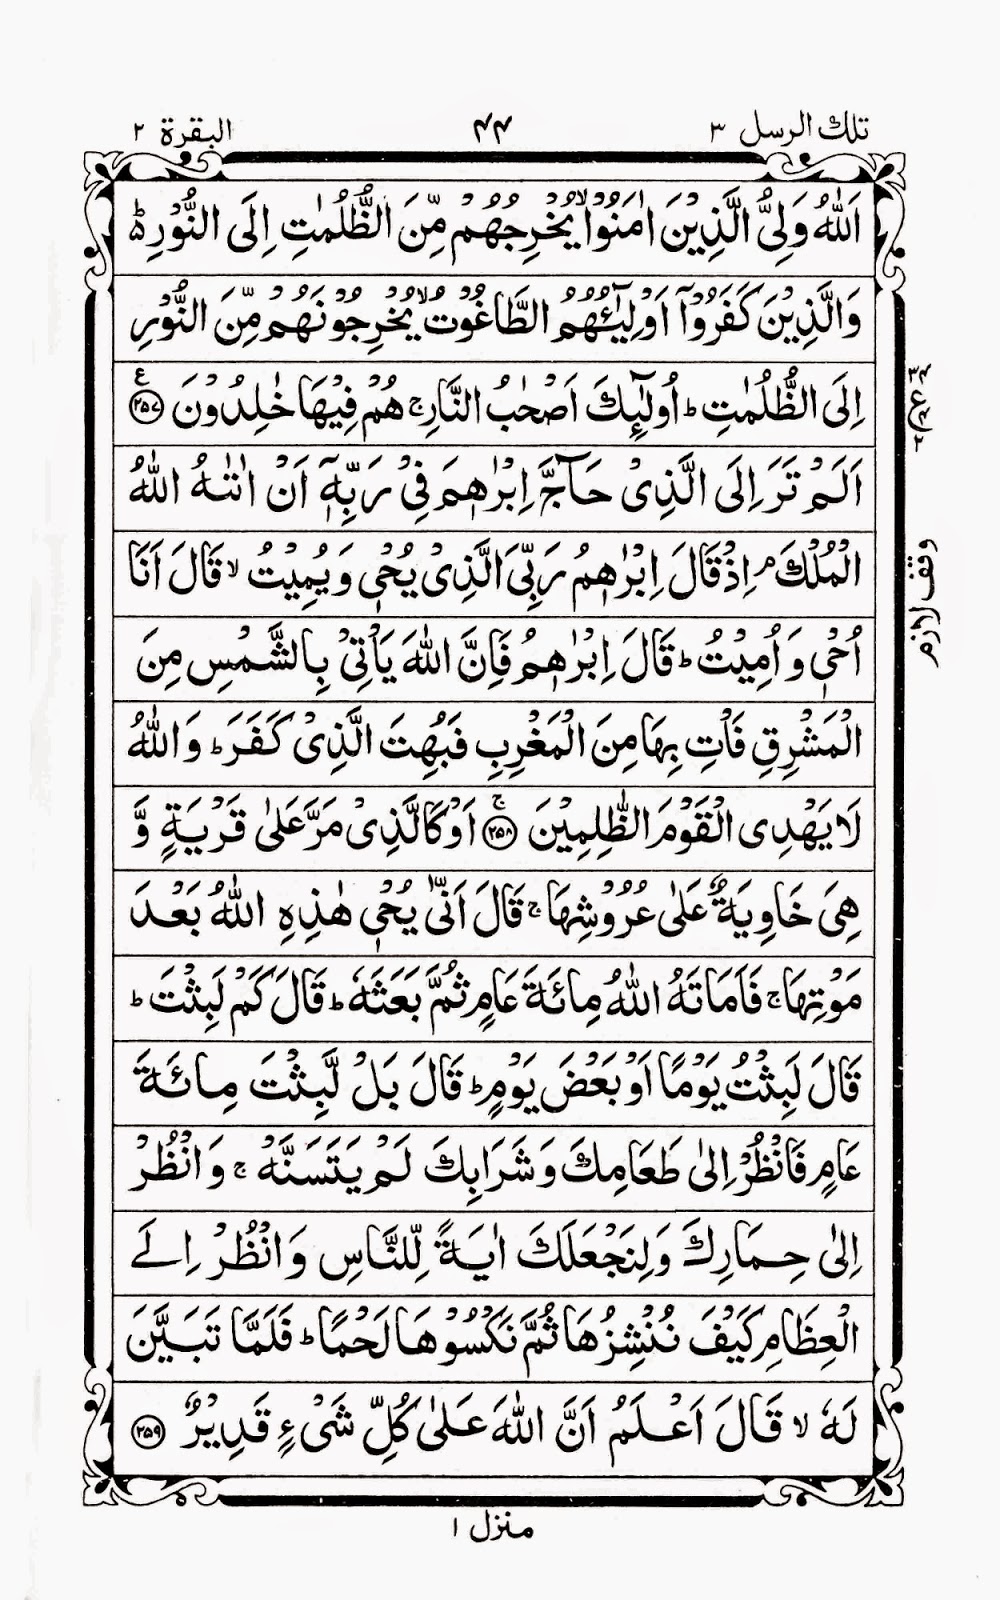 تلك الرسل ٣ ٤٤ البقرة ٢
اَللّٰهُ وَلِىُّ الَّذِيْنَ اٰمَنُوْا ۙ يُخْرِجُهُمْ مِّنَ الظُّلُمٰتِ اِلَى النُّوْرِ ؕ
وَالَّذِيْنَ كَفَرُوْۤا اَوْلِيٰٓـئُهُمُ الطَّاغُوْتُ ۙ يُخْرِجُوْنَهُمْ مِّنَ النُّوْرِ
اِلَى الظُّلُمٰتِ ؕ اُولٰٓئِكَ اَصْحٰبُ النَّارِ ۚ هُمْ فِيْهَا خٰلِدُوْنَ ﴿٢٥٧﴾ ع
اَلَمْ تَرَ اِلَى الَّذِىْ حَآجَّ اِبْرٰهٖمَ فِىْ رَبِّهٖۤ اَنْ اٰتٰٮهُ اللّٰهُ
الْمُلْكَ ۘ اِذْ قَالَ اِبْرٰهٖمُ رَبِّىَ الَّذِىْ يُحْىٖ وَيُمِيْتُ ۙ قَالَ اَنَا
اُحْىٖ وَاُمِيْتُ ؕ قَالَ اِبْرٰهٖمُ فَاِنَّ اللّٰهَ يَاْتِىْ بِالشَّمْسِ مِنَ
الْمَشْرِقِ فَاْتِ بِهَا مِنَ الْمَغْرِبِ فَبُهِتَ الَّذِىْ كَفَرَ ؕ وَاللّٰهُ
لَا يَهْدِى الْقَوْمَ الظّٰلِمِيْنَ ﴿٢٥٨﴾ ۚ اَوْ كَالَّذِىْ مَرَّ عَلٰى قَرْيَةٍ وَّ
هِىَ خَاوِيَةٌ عَلٰى عُرُوْشِهَا ۚ قَالَ اَنّٰى يُحْىٖ هٰذِهِ اللّٰهُ بَعْدَ
مَوْتِهَا ۚ فَاَمَاتَهُ اللّٰهُ مِائَةَ عَامٍ ثُمَّ بَعَثَهٗ ؕ قَالَ كَمْ لَبِثْتَ ؕ
قَالَ لَبِثْتُ يَوْمًا اَوْ بَعْضَ يَوْمٍ ؕ قَالَ بَلْ لَّبِثْتَ مِائَةَ
عَامٍ فَانْظُرْ اِلٰى طَعَامِكَ وَشَرَابِكَ لَمْ يَتَسَنَّهْ ۚ وَانْظُرْ
اِلٰى حِمَارِكَ وَلِنَجْعَلَكَ اٰيَةً لِّلنَّاسِ وَانْظُرْ اِلَى
الْعِظَامِ كَيْفَ نُنْشِزُهَا ثُمَّ نَكْسُوْهَا لَحْمًا ؕ فَلَمَّا تَبَيَّنَ
لَهٗ ۙ قَالَ اَعْلَمُ اَنَّ اللّٰهَ عَلٰى كُلِّ شَىْءٍ قَدِيْرٌ ﴿٢٥٩﴾
ع
وقف لازم
منزل ١